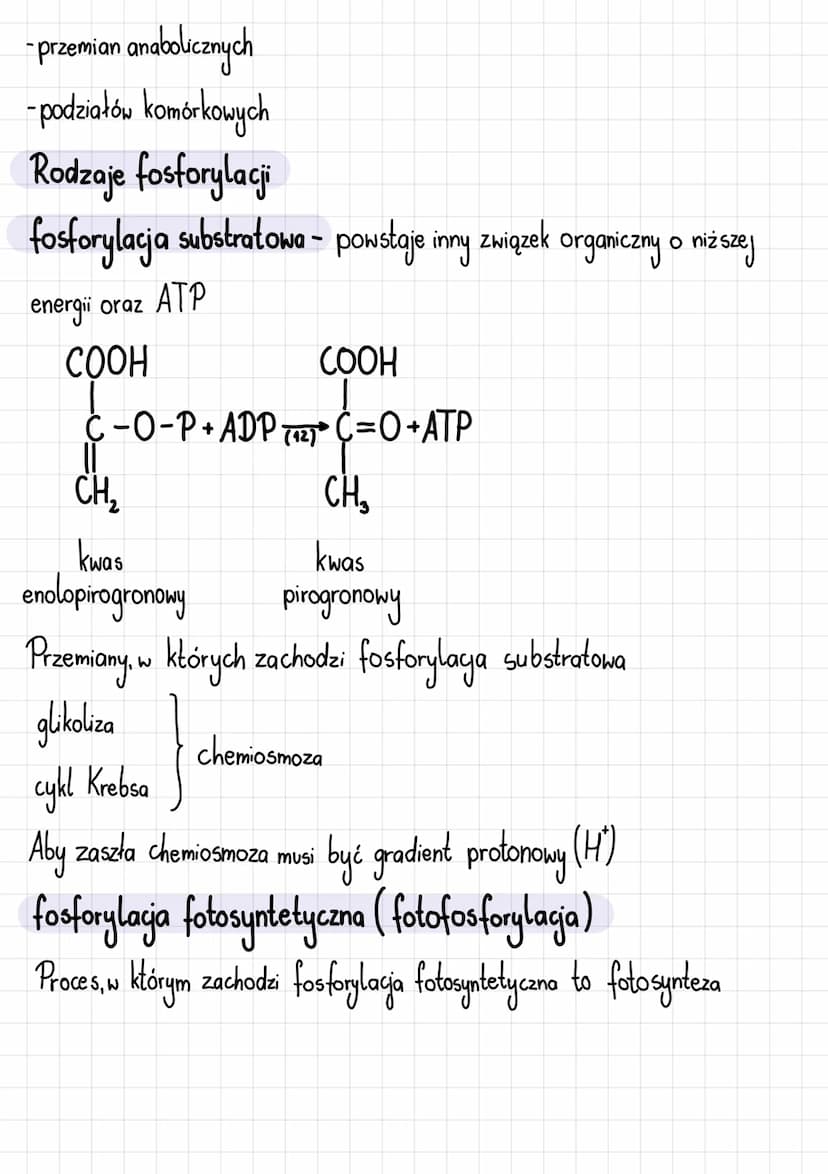 -przemian anabolicznych
-podziałów komórkowych
Rodzaje fosforylacji
fosforylacja substratowa - powstaje inny związek organiczny o niższej
energii oraz ATP
COOH COOH
C-O-P+ADP (12) C=O+ATP
CH₂ CH₃
kwas kwas
enolopirogronowy pirogronowy
Przemiany, w których zachodzi fosforylacja substratowa
glikoliza
chemiosmoza
cykl Krebsa
Aby zaszła chemiosmoza musi być gradient protonowy (H⁺)
fosforylacja fotosyntetyczna (fotofosforylacja)
Proces, w którym zachodzi fosforylacja fotosyntetyczna to fotosynteza